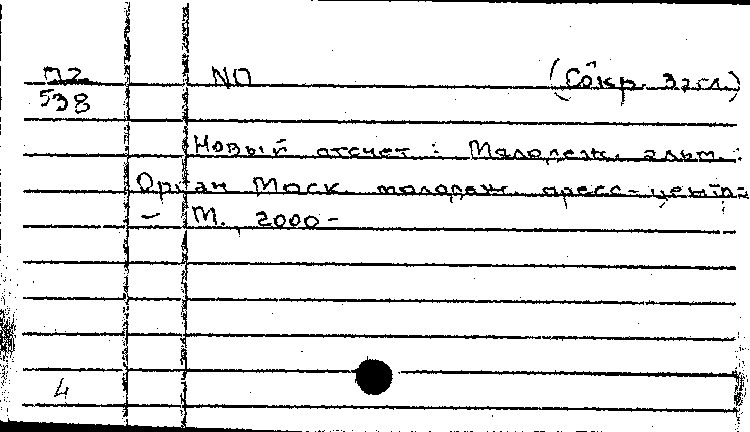 П2 NО (Сокр. загл.)
538
Новый отсчет : Молодеж. альм. :
Орган Моск. молодеж. пресс-центра
– М., 2000 -
4